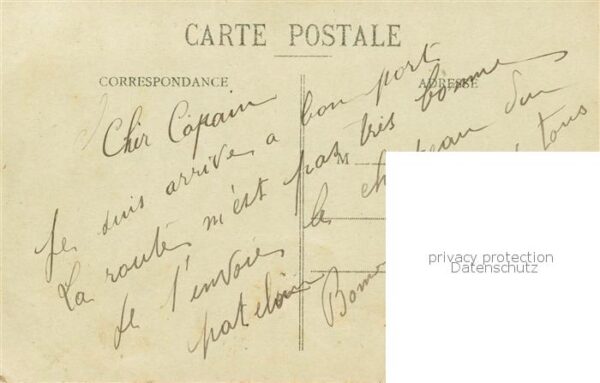 CARTE POSTALE
CORRESPONDANCE
ADRESSE
M
Cher Copain
Je suis arrivé a bon port
La route n'est pas très bonne
Je t'envoie le chateau du
patelin tous
Bonne
privacy protection
Datenschutz